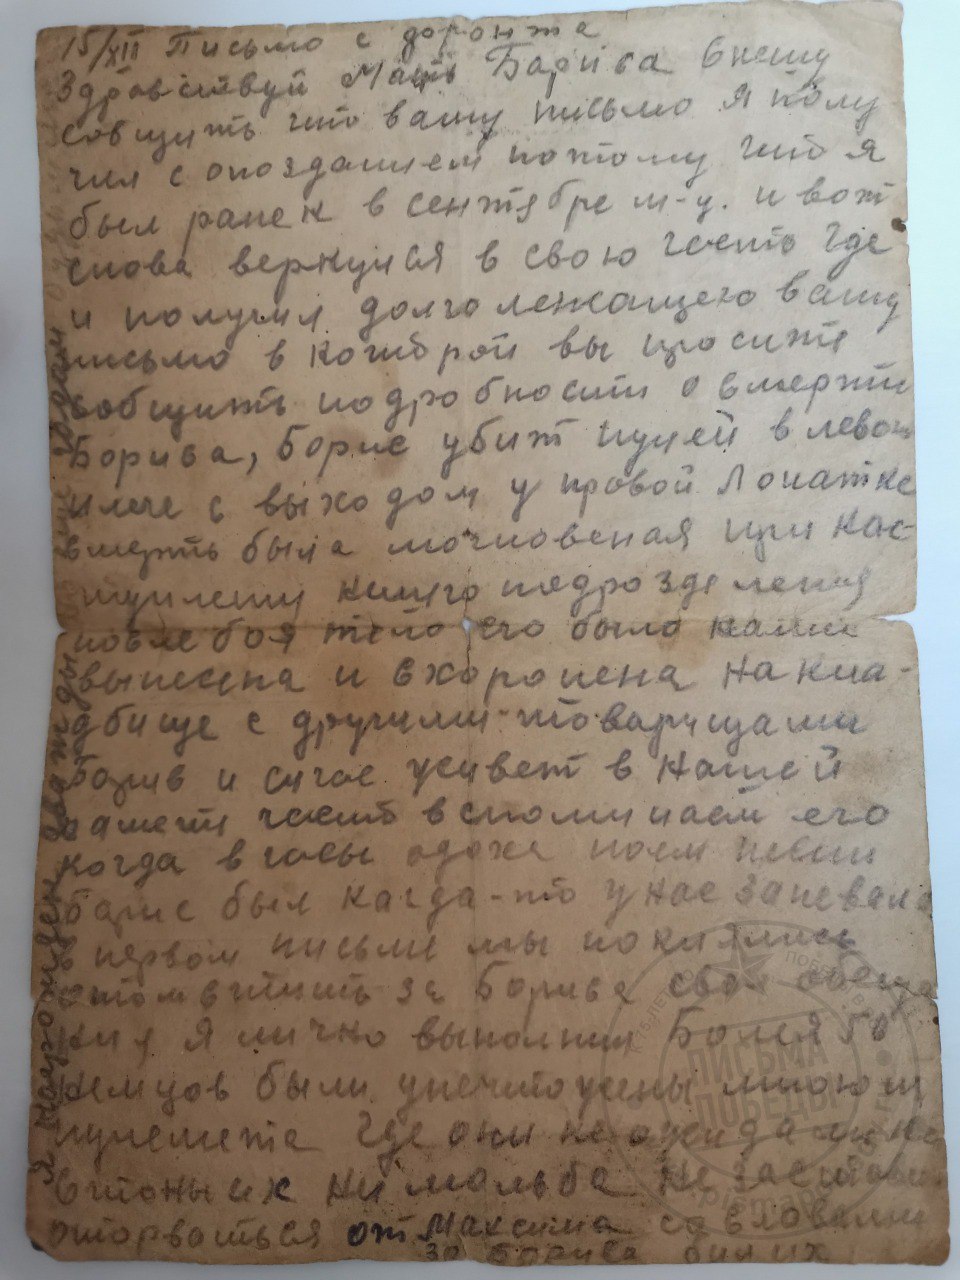 15/XII Письмо с
Здравствуй Мать Бориса Спешу
собщить что вашу письмо Я полу
чил с опозданием потому что я
был ранен в сентябре м-ц. и вот
снова вернулся в свою часть где
и получил долго лежащею вашу
письмо в которой вы просите
собщить подробности о вмерти
Бориса, Борис убит пулей в левом
плече с выходом у правой Лопатке
вмерть была мочновеная при нас-
туплении нашего подрозделения
повле боя тело его было нами
вынесена и схоронена на кла-
дбище с другими-товарищами
Борив и сичас живет в нашей
памети часто вспоминаем его
когда в часы одыха поем певни
Барис был кагда-то у нас запевала
в первом письме мы поклялись
отомвтить за Борива свои обеща
ния Я лично выполнил Болея 50
немцов были унечтожены мною
пулемета Где они не ожидали не
втоны их ни мольба не заставили
оторваться от Максима со вловами
за Борива бил их
Я награжден дважды
ПИСЬМА
ПОБЕДЫ